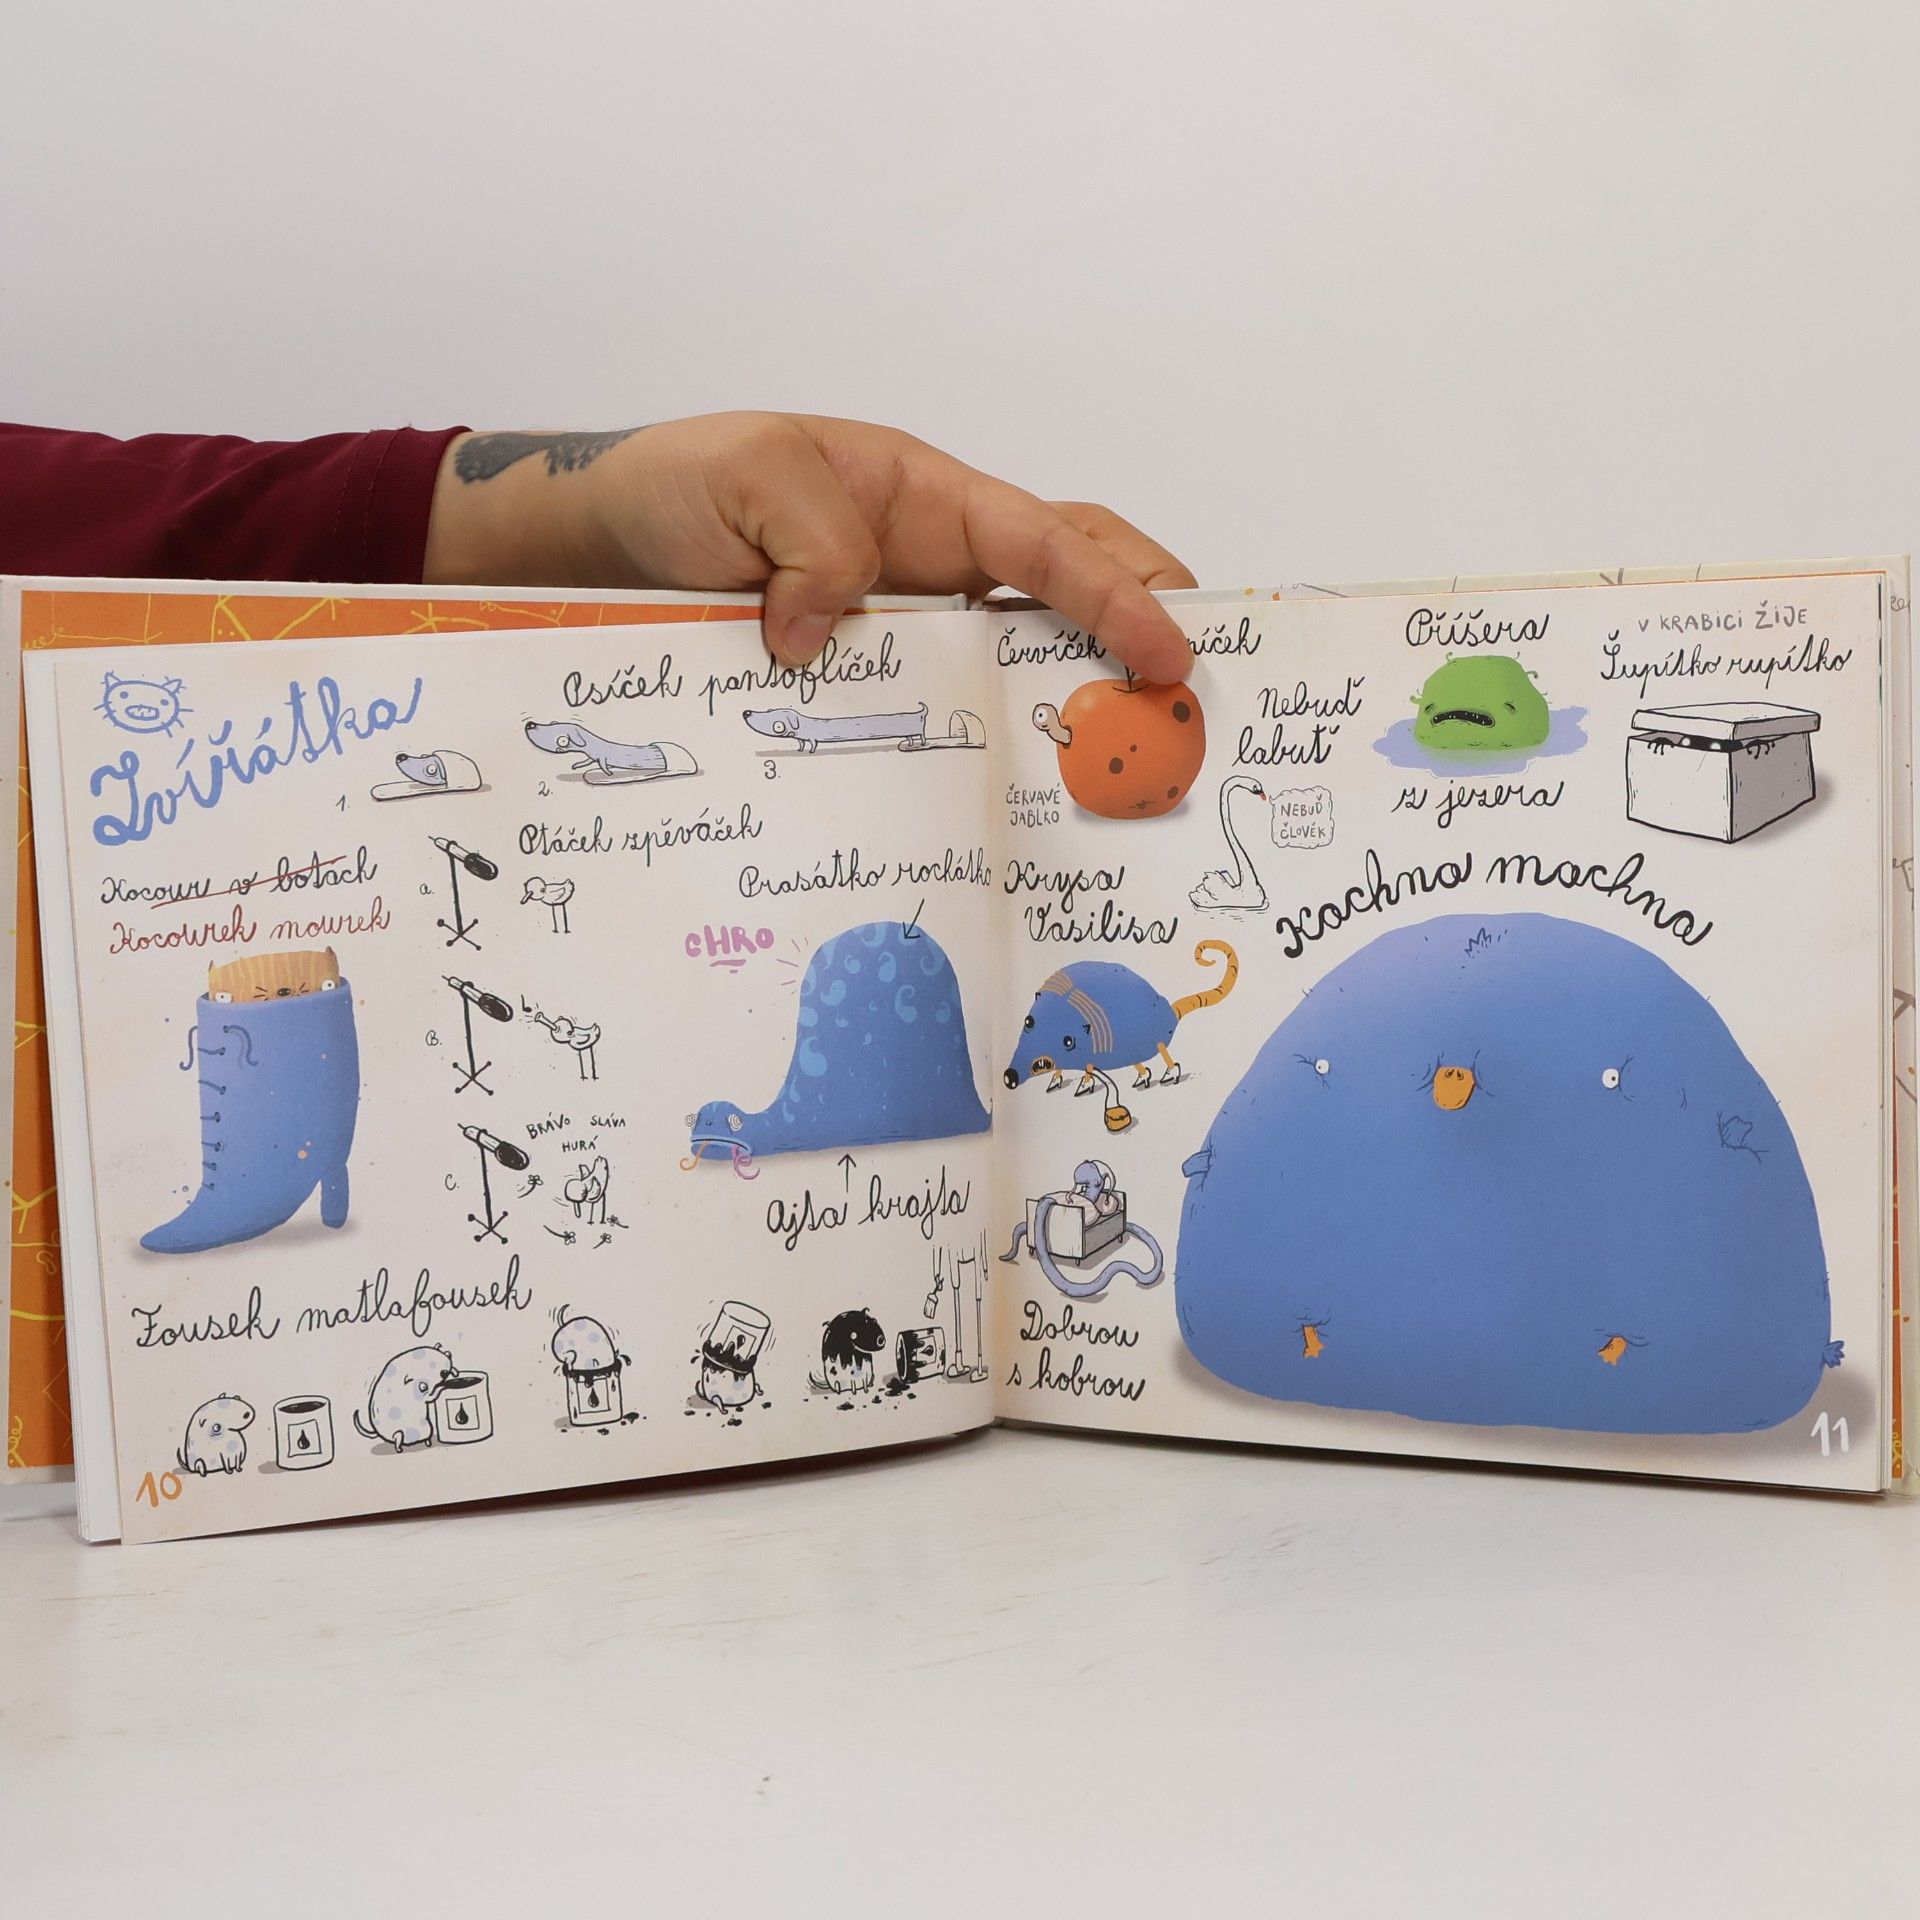 Zvířátka
Psíček pantoflíček
1.
2.
3.
Kocour v botách
Kocourek mourek
Ptáček zpěváček
a.
B.
C.
BRÁVO SLÁVA
HURÁ
Prasátko rochátko
CHRO
Ajta krajta
Fousek matlafousek
10
Červíček
níček
ČERVAVÉ
JABLKO
Nebuď
labuť
NEBUĎ
ČLOVĚK
Příšera
z jezera
V KRABICI ŽIJE
Šupítko rupítko
Krysa
Vasilisa
Kachna machna
Dobrou
s kobrou
11